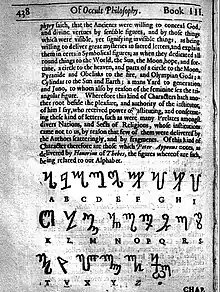 438 Of Occult Philosophy. Book III.
phyry saith, that the Ancients were willing to conceal God,
and divine vertues by sensible figures, and by those things
which were visible, yet signifying invisible things, as being
willing to deliver great mysteries in sacred letters, and explain
them in certain Symbolical figures; as when they dedicated all
round things to the World, the Sun, the Moon, hope, and for-
tune, a circle to the heaven, and parts of a circle to the Moon,
Pyramide and Obelisks to the fire, and Olympian Gods; a
Cylinder to the Sun and Earth; a mans Yard to generation
and Juno, to whom also by reason of the feminine sex the tri-
angular figure. Wherefore this kind of Characters hath ano-
ther root beside the pleasure, and authority of the institutor,
of him I say, who received power of instituting, and consecra-
ting these kind of letters, such as were many Prelates amongst
divers Nations, and Sects of Religions, whose institutions
came not to us, by reason that few of them were delivered by
the Authors scatteringly, and by fragments. Of this kind of
Character therefore are those which Peter Apponus notes, as
delivered by Honorius of Thebes, the figures whereof are such,
being related to our Alphabet.
A B C D E F G H I
K L M N O P Q R S
T V X Y Z
CHAP.